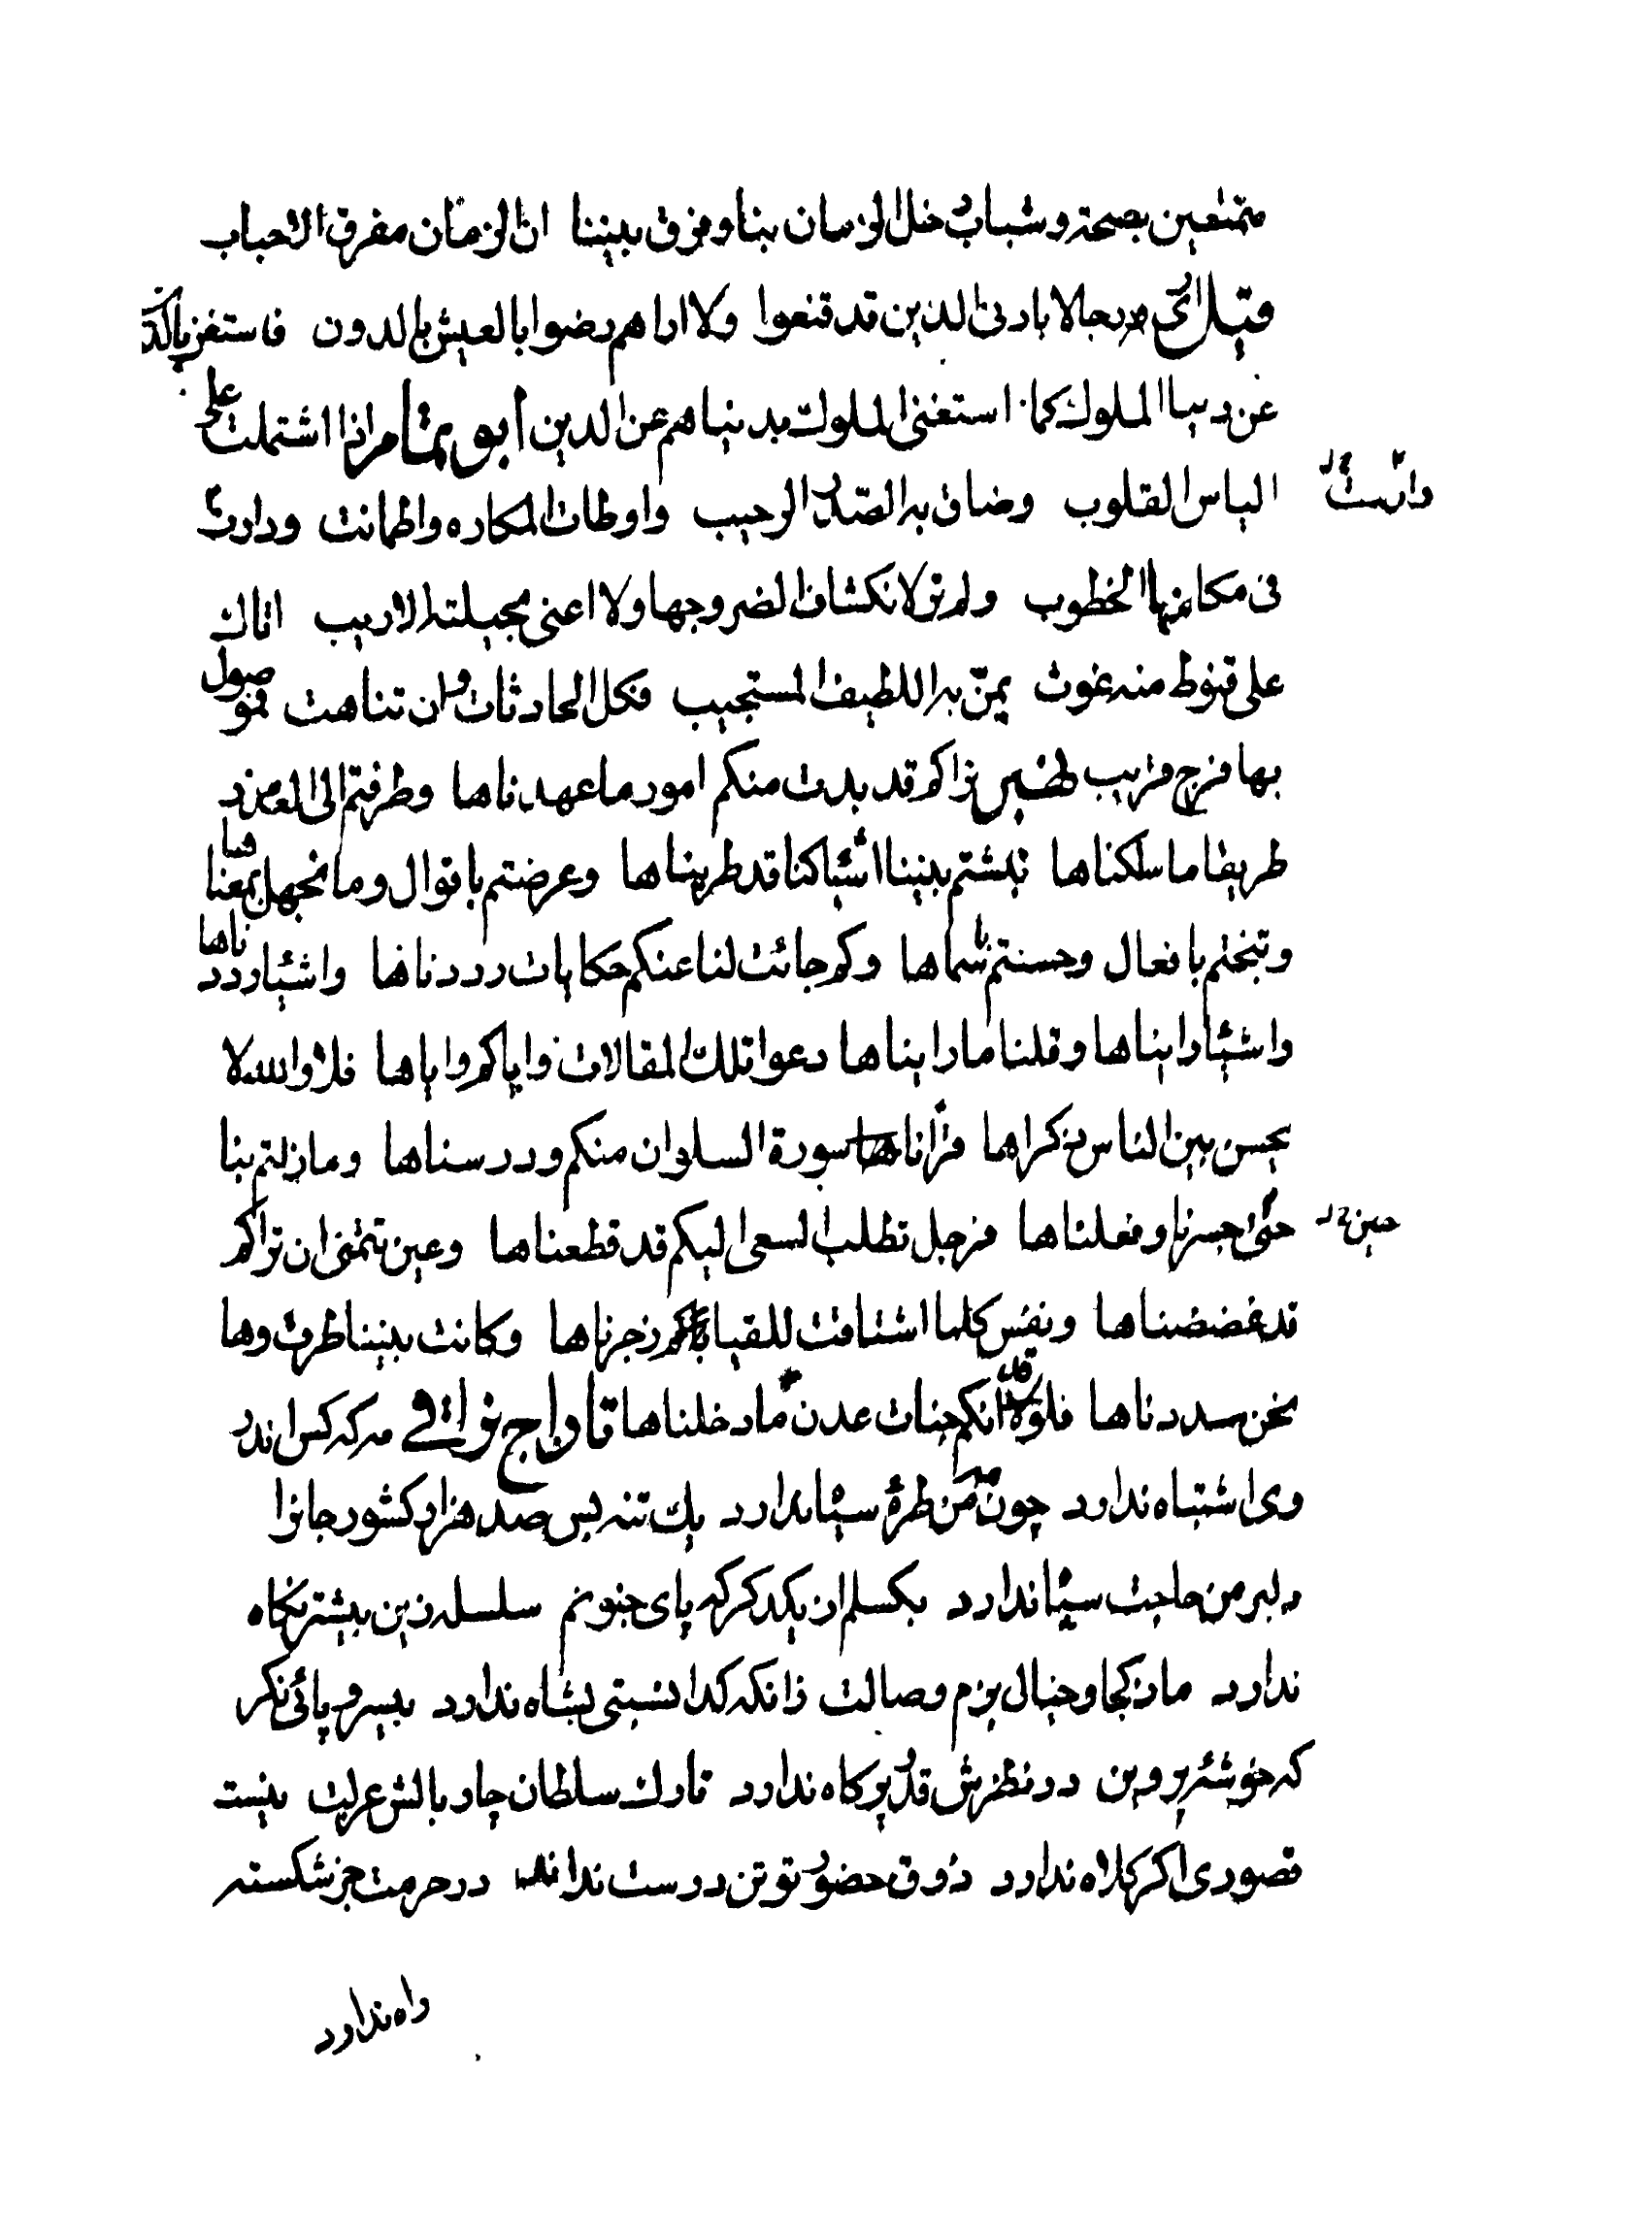 متمتعین بصحة وشباب خلل الزمان بنا وفرق بیننا ان الزمان مفرق الاحباب
قیل اری رجالا بادنی الدین قد قنعوا ولا اراهم رضوا بالعیش بالدون فاستغن بالله
عن دنیا الملوك كما استغنی الملوك بدنیاهم عن الدین ابو تمام اذا اشتملت علی
الیاس القلوب وضاق به الصدر الرحیب واوطات المكاره واطمانت ودارت
فی مكامنها الخطوب ولم تر لانكشاف الضر وجها ولا اغنی بحیلته الاریب اتاك
علی قنوط منه غوث یمنّ به اللطیف المستجیب فكل الحادثات وان تناهت فموصول
بها فرج قریب نراكم قد بدت منكم امور ما عهدناها وطرقتم الی الغدر
طریقا ما سلكناها نبشتم بیننا اشیا كنا قد طویناها وعرضتم باقوال وما نجهل معناها
وقبحتم بافعال وحسنتم باسماها وكم جائت لنا عنكم حكایات رددناها واشیا رددناها
واشیا رایناها وقلنا ما رایناها دعوا تلك المقالات وایاكم وایاها فلا والله لا
یحسن بین الناس ذكراها قرانا سورة السلوان منكم ودرسناها وما زلتم بنا
حتی جسرنا وفعلناها فرجل تطلب السعی الیكم قد قطعناها وعین تتمنی ان تراكم
قد غضضناها ونفس كلما اشتاقت للقیاكم زجرناها وكانت بیننا طرق وها
نحن سددناها فلو انكم جنات عدن ما دخلناها تاراج نراقی هر كه كس اندر
وی اشتباه ندارد چون من طرهٔ سیاه ندارد یك تنه بس صد هزار كشور جانرا
دلبر من حاجت سپاه ندارد بكسلم از یكدكر كه پای جنونم سلسله زین بیشتر نكاه
ندارد ما ز كجا و خیال بزم وصالت زانكه كدا نسبتی بشاه ندارد بیسر و پائی نكر
كه خوشهٔ پروین در نظرش قدر پر كاه ندارد تارك سلطان چار بالش عزلت نیست
قصوری اكر كلاه ندارد ذوق حضور تو تن درست نداند در حرمت جز شكسته
راه ندارد